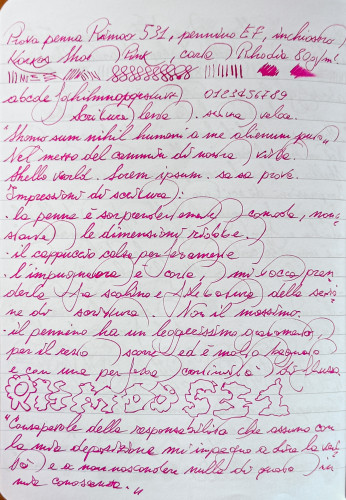 Prova penna Rimoo 531, pennino EF, inchiostro
Shot Pink carta Rhodia 80g/m²
abcdefghilmnopqrstuvz 0123456789
Scrittura lenta. scrittura veloce.
"Homo sum nihil humani a me alienum puto"
Nel mezzo del cammin di nostra vita.
Hello world. Lorem ipsum. sa sa prova.
Impressioni di scrittura:
. la penna è sorprendentemente comoda, non-
stante le dimensioni ridotte.
. il cappuccio calza perfettamente
. l'impugnatura è corta, mi tocca pren
derla tra scalino e filettatura della sezio
ne di scrittura. Non il massimo.
. il pennino ha un leggerissimo grattamento,
per il resto scorre ed è molto bagnato
e con una perfetta continuità di flusso.
RIIMOO 531
"Consapevole della responsabilità che assumo con
la mia deposizione mi impegno a dire la veri
tà e a non nascondere nulla di quanto in
mia conoscenza."